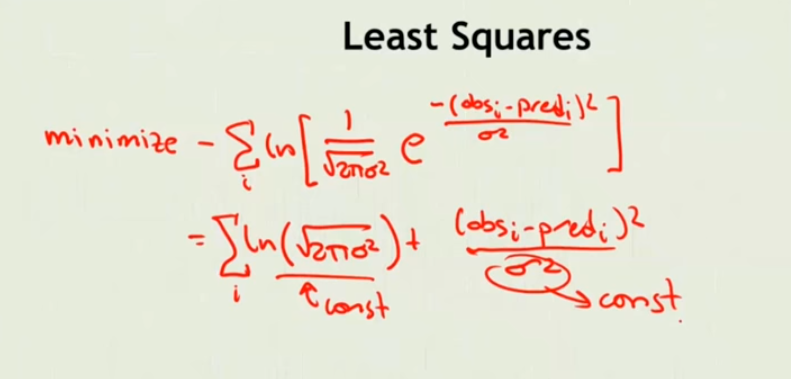 Least Squares
minimize - Σ_i ln[ 1/√(2πσ²) e^(-(obs_i-pred_i)²/σ²) ]
= Σ_i ln(√(2πσ²)) + (obs_i-pred_i)²/σ²
↑const → const.